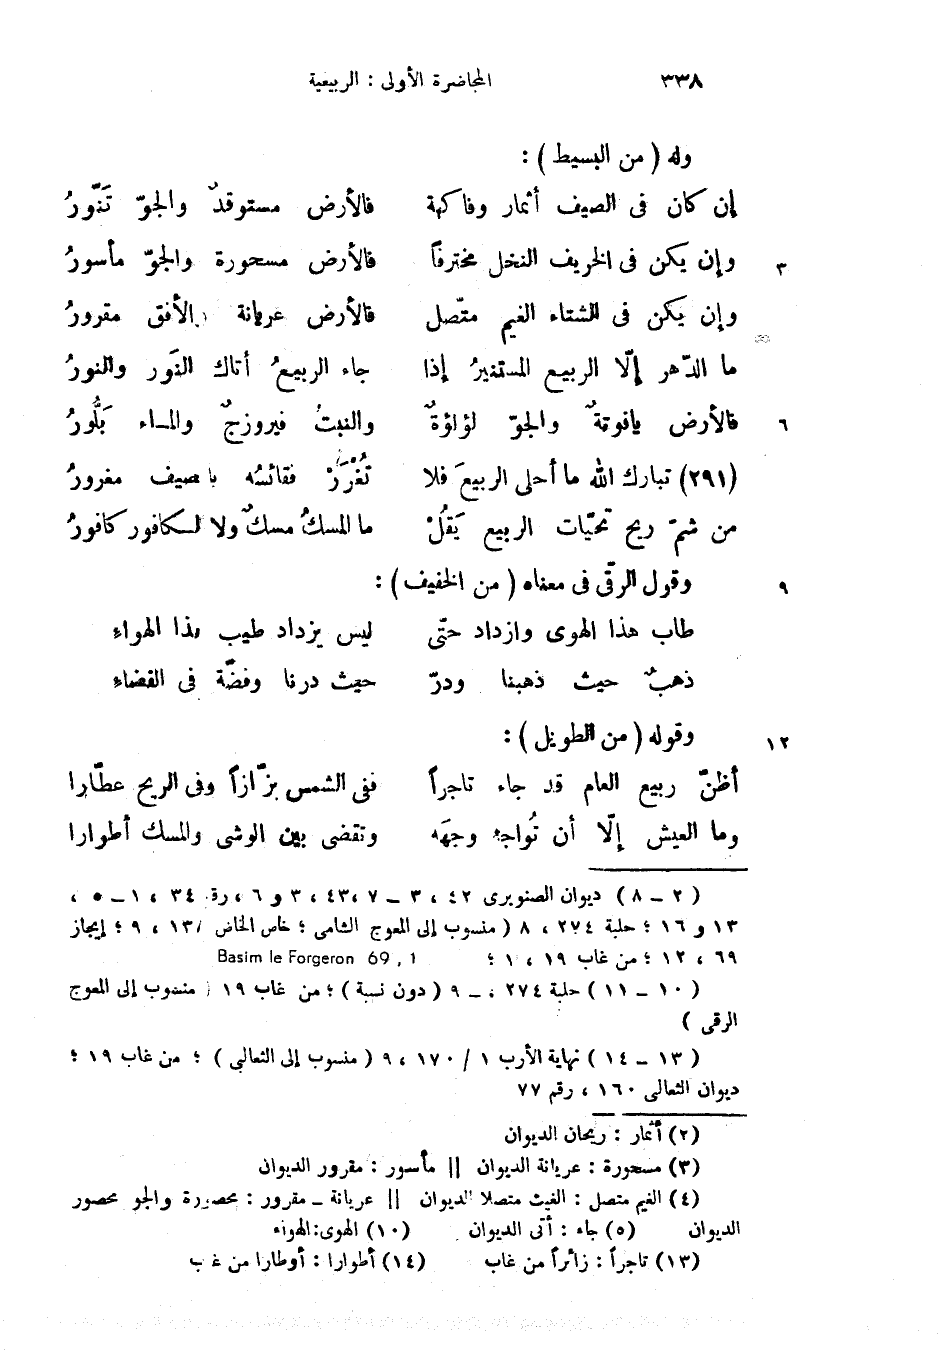 ٣٣٨ المحاضرة الأولى : الربيعية
وله ( من البسيط ) :
إن كان فى الصيف أثمار وفاكهة فالأرض مستوقدٌ والجوّ تَنّورُ
٣ وإن يكن فى الخريف النخل مخترفاً فالأرض مسحورة والجوّ مأسورُ
وإن يكن فى الشتاء الغيم متّصل فالأرض عريانة والأفق مقرورُ
ما الدّهر إلّا الربيع المستنيرُ إذا جاء الربيعُ أتاك النَور والنورُ
٦ فالأرض ياقوتةٌ والجوّ لؤلؤةٌ والنبتُ فيروزجٌ والمـاء بَلُّورُ
(٢٩١) تبارك الله ما أحلى الربيعَ فلا تُغْرَرْ فقائسُه بالصيف مغرورُ
من شمّ ريح تحيّات الربيع يَقُلْ ما المسكُ مسكٌ ولا الـكافور كافورُ
٩ وقول الرقّى فى معناه ( من الخفيف ) :
طاب هذا الهوى وازداد حتّى ليس يزداد طيب هذا الهواء
ذهبٌ حيث ذهبنا ودرّ حيث درنا وفضّة فى الفضاء
١٢ وقوله ( من الطويل ) :
أظنّ ربيع العام قد جاء تاجراً ففى الشمس بزّازاً وفى الريح عطّارا
وما العيش إلّا أن تُواجه وجهَه وتقضى بين الوشى والمسك أطوارا
( ٢ – ٨ ) ديوان الصنوبرى ٤٢ ، ٣ – ٧ ،٤٣ ، ٣ و ٦ ، رقم ٣٤ ، ١ – ٥ ،
١٣ و ١٦ ؛ حلبة ٢٧٤ ، ٨ ( منسوب إلى المعوج الشامى ؛ خاص الخاص ١٣١ ، ٩ ؛ إيجاز
٦٩ ، ١٢ ؛ من غاب ١٩ ، ١ ؛ Basim le Forgeron 69 , 1
( ١٠ – ١١ ) حلبة ٢٧٤ ، – ٩ ( دون نسبة ) ؛ من غاب ١٩ ( منسوب إلى المعوج
الرقى )
( ١٣ – ١٤ ) نهاية الأرب ١ / ١٧٠ ، ٩ ( منسوب إلى الثعالبى ) ؛ من غاب ١٩ ؛
ديوان الثعالبى ١٦٠ ، رقم ٧٧
(٢) أثمار : ريحان الديوان
(٣) مسحورة : عريانة الديوان || مأسور : مقرور الديوان
(٤) الغيم متصل : الغيث متصلا الديوان || عريانة – مقرور : محصورة والجو محصور
الديوان (٥) جاء : أتى الديوان (١٠) الهوى : الهواء
(١٣) تاجراً : زائراً من غاب (١٤) أطوارا : أوطارا من غاب